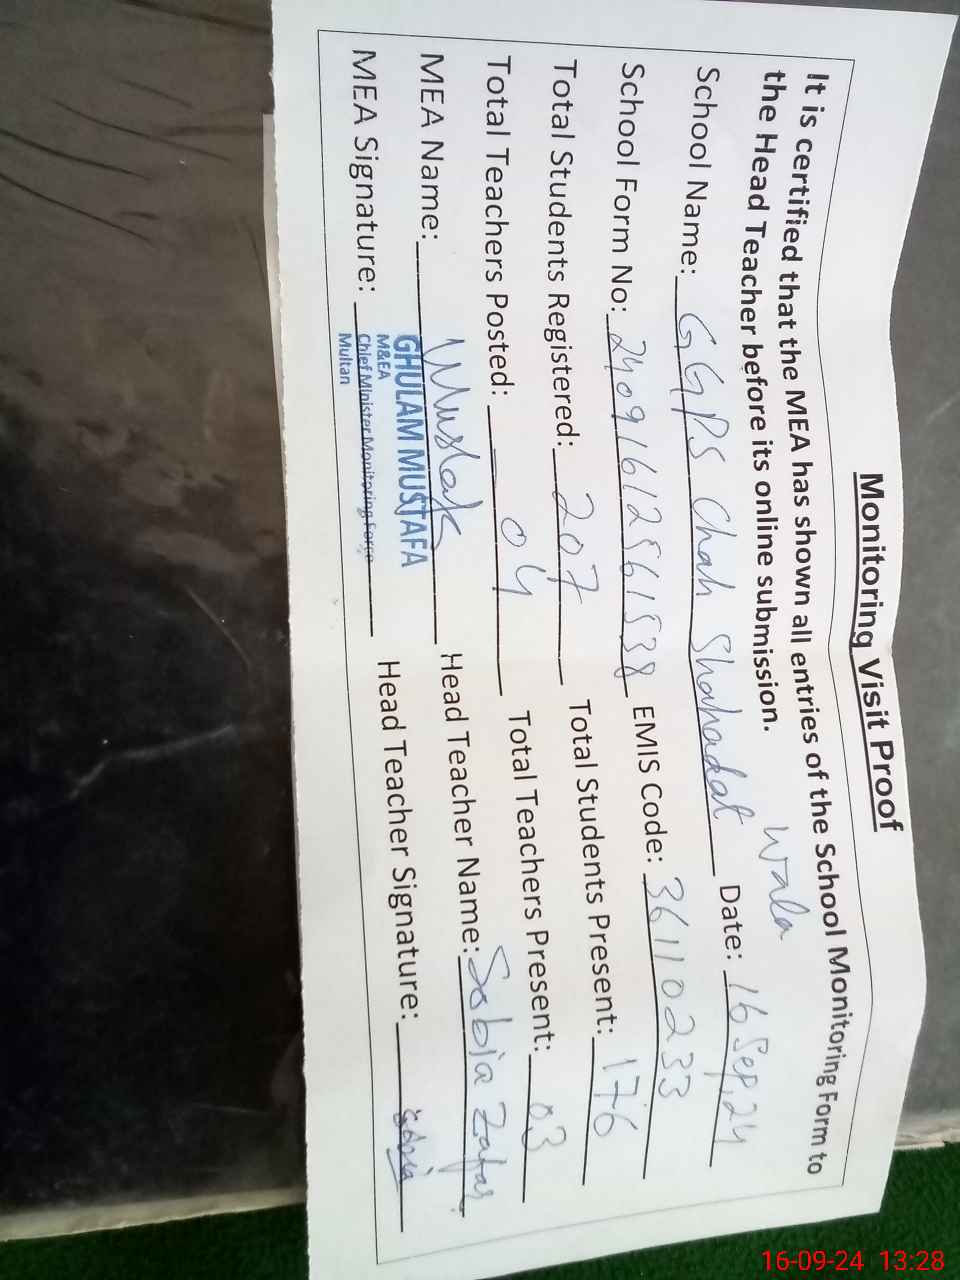 Monitoring Visit Proof
It is certified that the MEA has shown all entries of the School Monitoring Form to
the Head Teacher before its online submission.
Wala
School Name: GGPS Chah Shahadat Date: 16 Sep,24
School Form No: 24091612561538 EMIS Code: 36110233
Total Students Registered: 207 Total Students Present: 176
Total Teachers Posted: 04 Total Teachers Present: 03
MEA Name: Head Teacher Name: Sobia Zafar
GHULAM MUSTAFA
M&EA
MEA Signature: Head Teacher Signature: Sobia
Chief Minister Monitoring Force
Multan
16-09-24 13:28